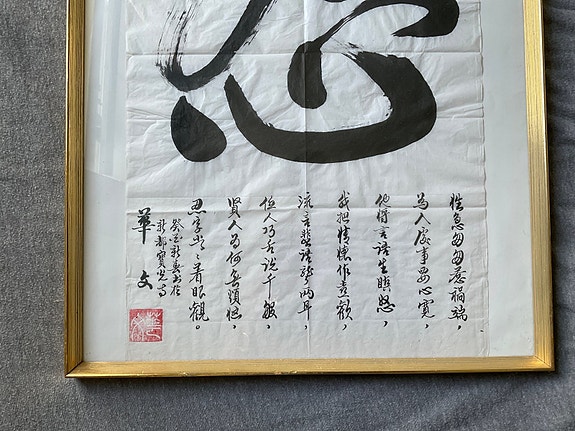 性急匆匆惹禍端，
為人處事要心寬，
他借言語生瞋怒，
我把情懷作喜歡，
流言蜚語聾兩耳，
任人巧舌說千般，
賢人為何無煩惱，
忍字常々着眼觀。
癸酉新春書於
新都寶光寺
華文